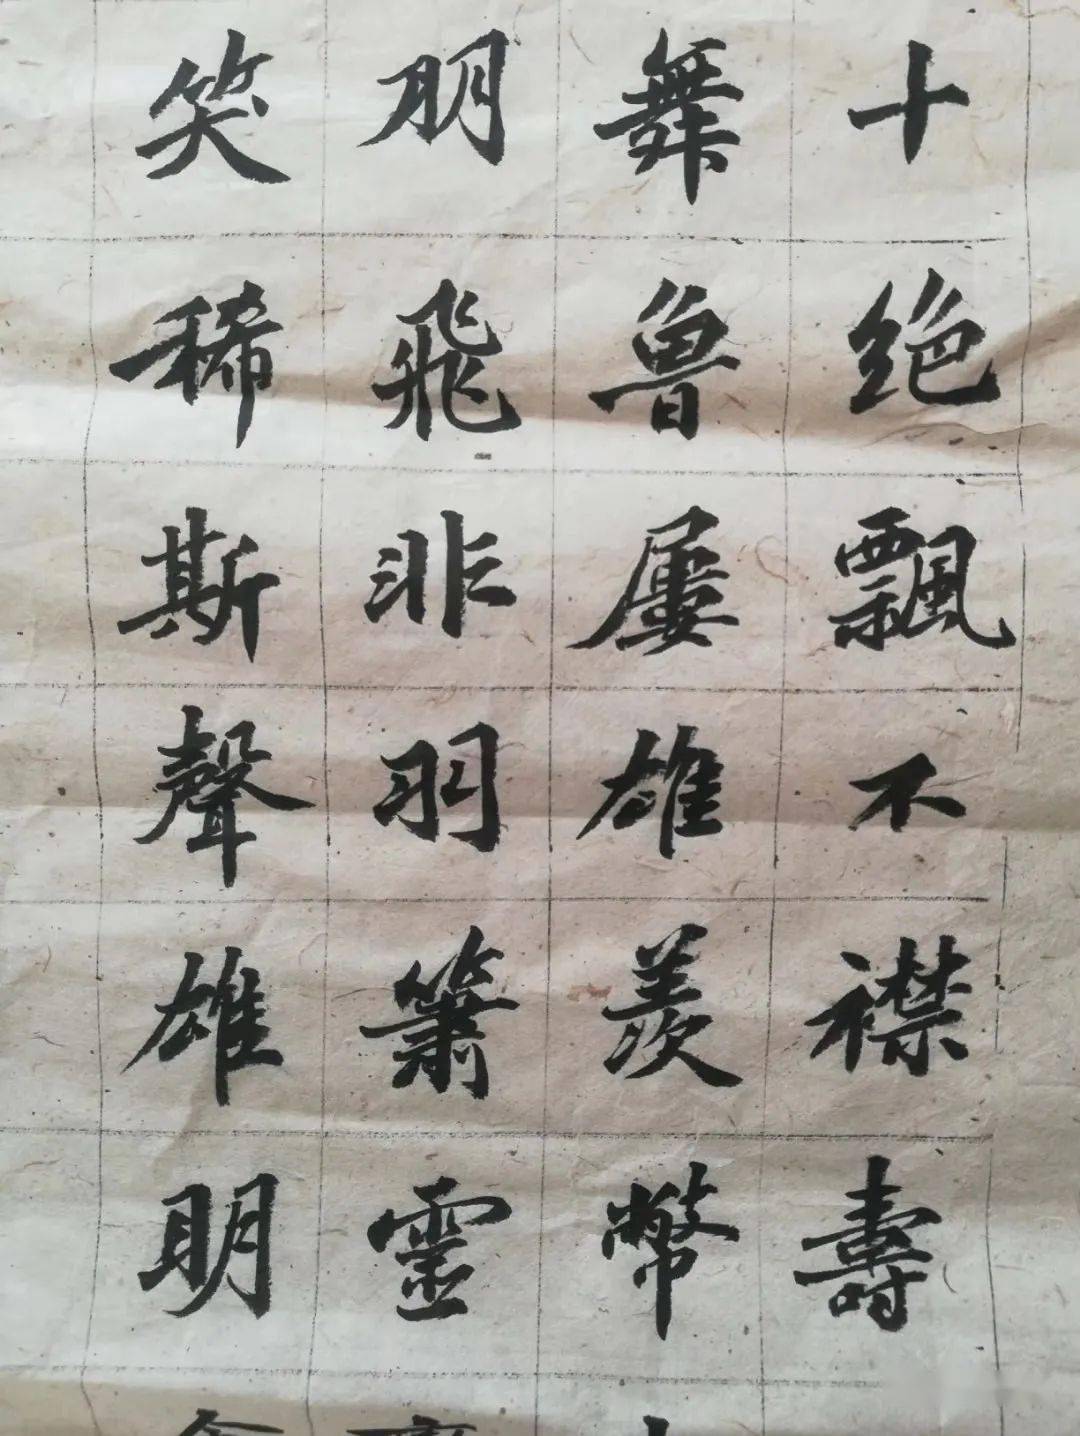 十絶飄不襟壽
舞魯屢雄羨幣
朋飛非羽簫靈
笑稀斯聲雄明